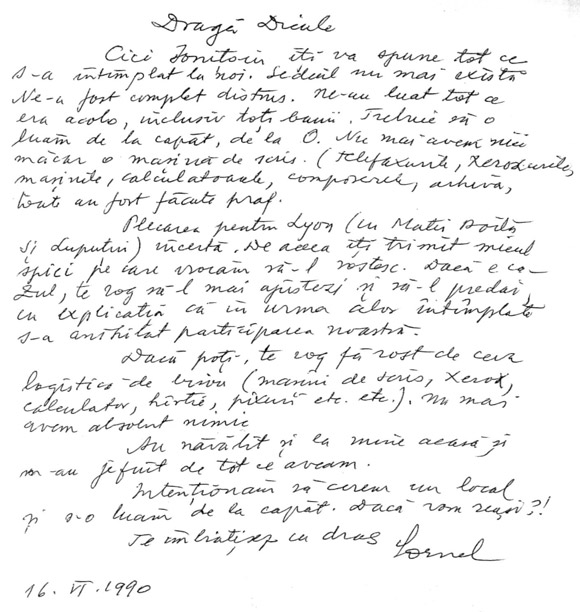 Dragă Dicule
Cici Ioniţoiu îţi va spune tot ce
s-a întîmplat la noi. Sediul nu mai există
Ne-a fost complet distrus. Ne-au luat tot ce
era acolo, inclusiv toţi banii. Trebuie să o
luăm de la capăt, de la 0. Nu mai avem nici
măcar o maşină de scris. (telefaxurile, xeroxurile,
maşinile, calculatoarele, composerele, arhiva,
toate au fost făcute praf.
Plecarea pentru Lyon (cu Matei Boilă
şi Lupuţiu) incertă. De aceea îţi trimit micul
spici pe care vroiam să-l rostesc. Dacă e ca-
zul, te rog să-l mai ajustezi şi să-l predai,
cu explicaţia că în urma celor întîmplate
s-a anihilat participarea noastră.
Dacă poţi, te rog fă rost de ceva
logistică de birou (maşini de scris, xerox,
calculator, hîrtie, pixuri etc. etc.). Nu mai
avem absolut nimic
Au năvălit şi la mine acasă şi
m-au jefuit de tot ce aveam.
Intenţionăm să cerem un local
şi s-o luăm de la capăt. Dacă vom reuşi?!
Te îmbrăţişez cu drag Cornel
16. VI. 1990